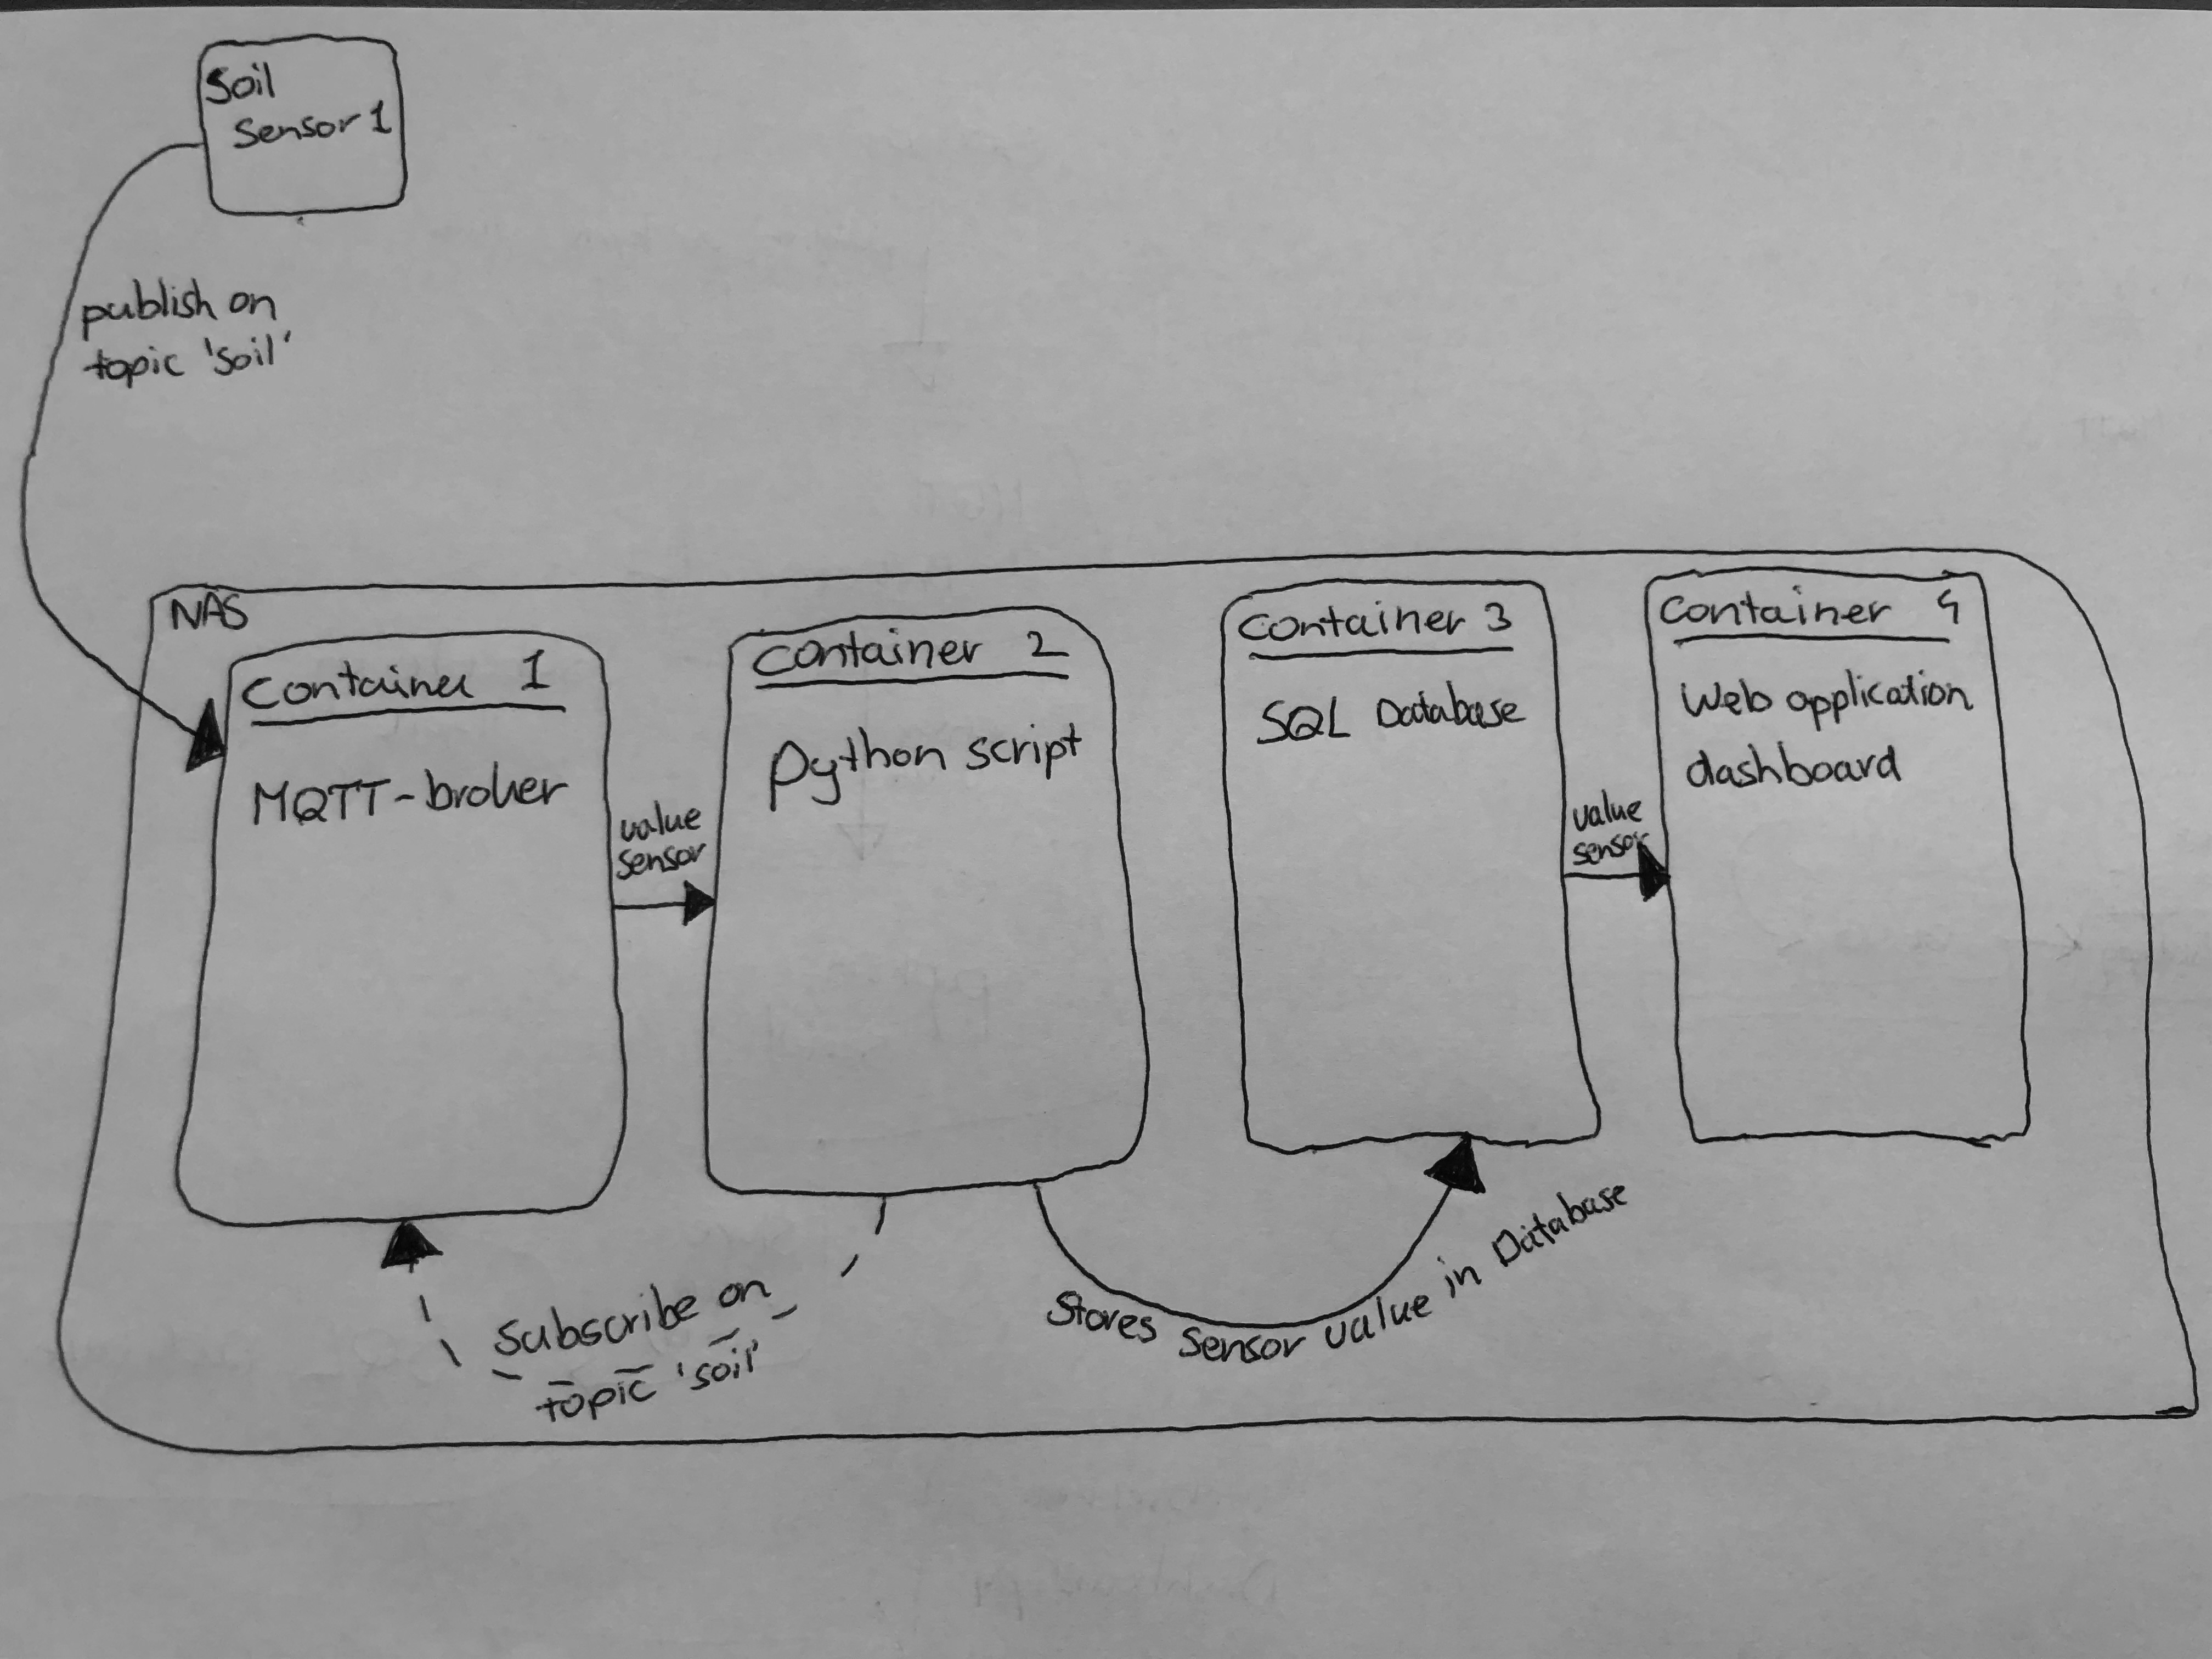 Soil
Sensor 1
publish on
topic 'soil'
NAS
Container 1
MQTT-broker
value
sensor
Container 2
python script
Container 3
SQL Database
value
sensor
Container 4
Web application
dashboard
Subscribe on
topic 'soil'
Stores sensor value in Database